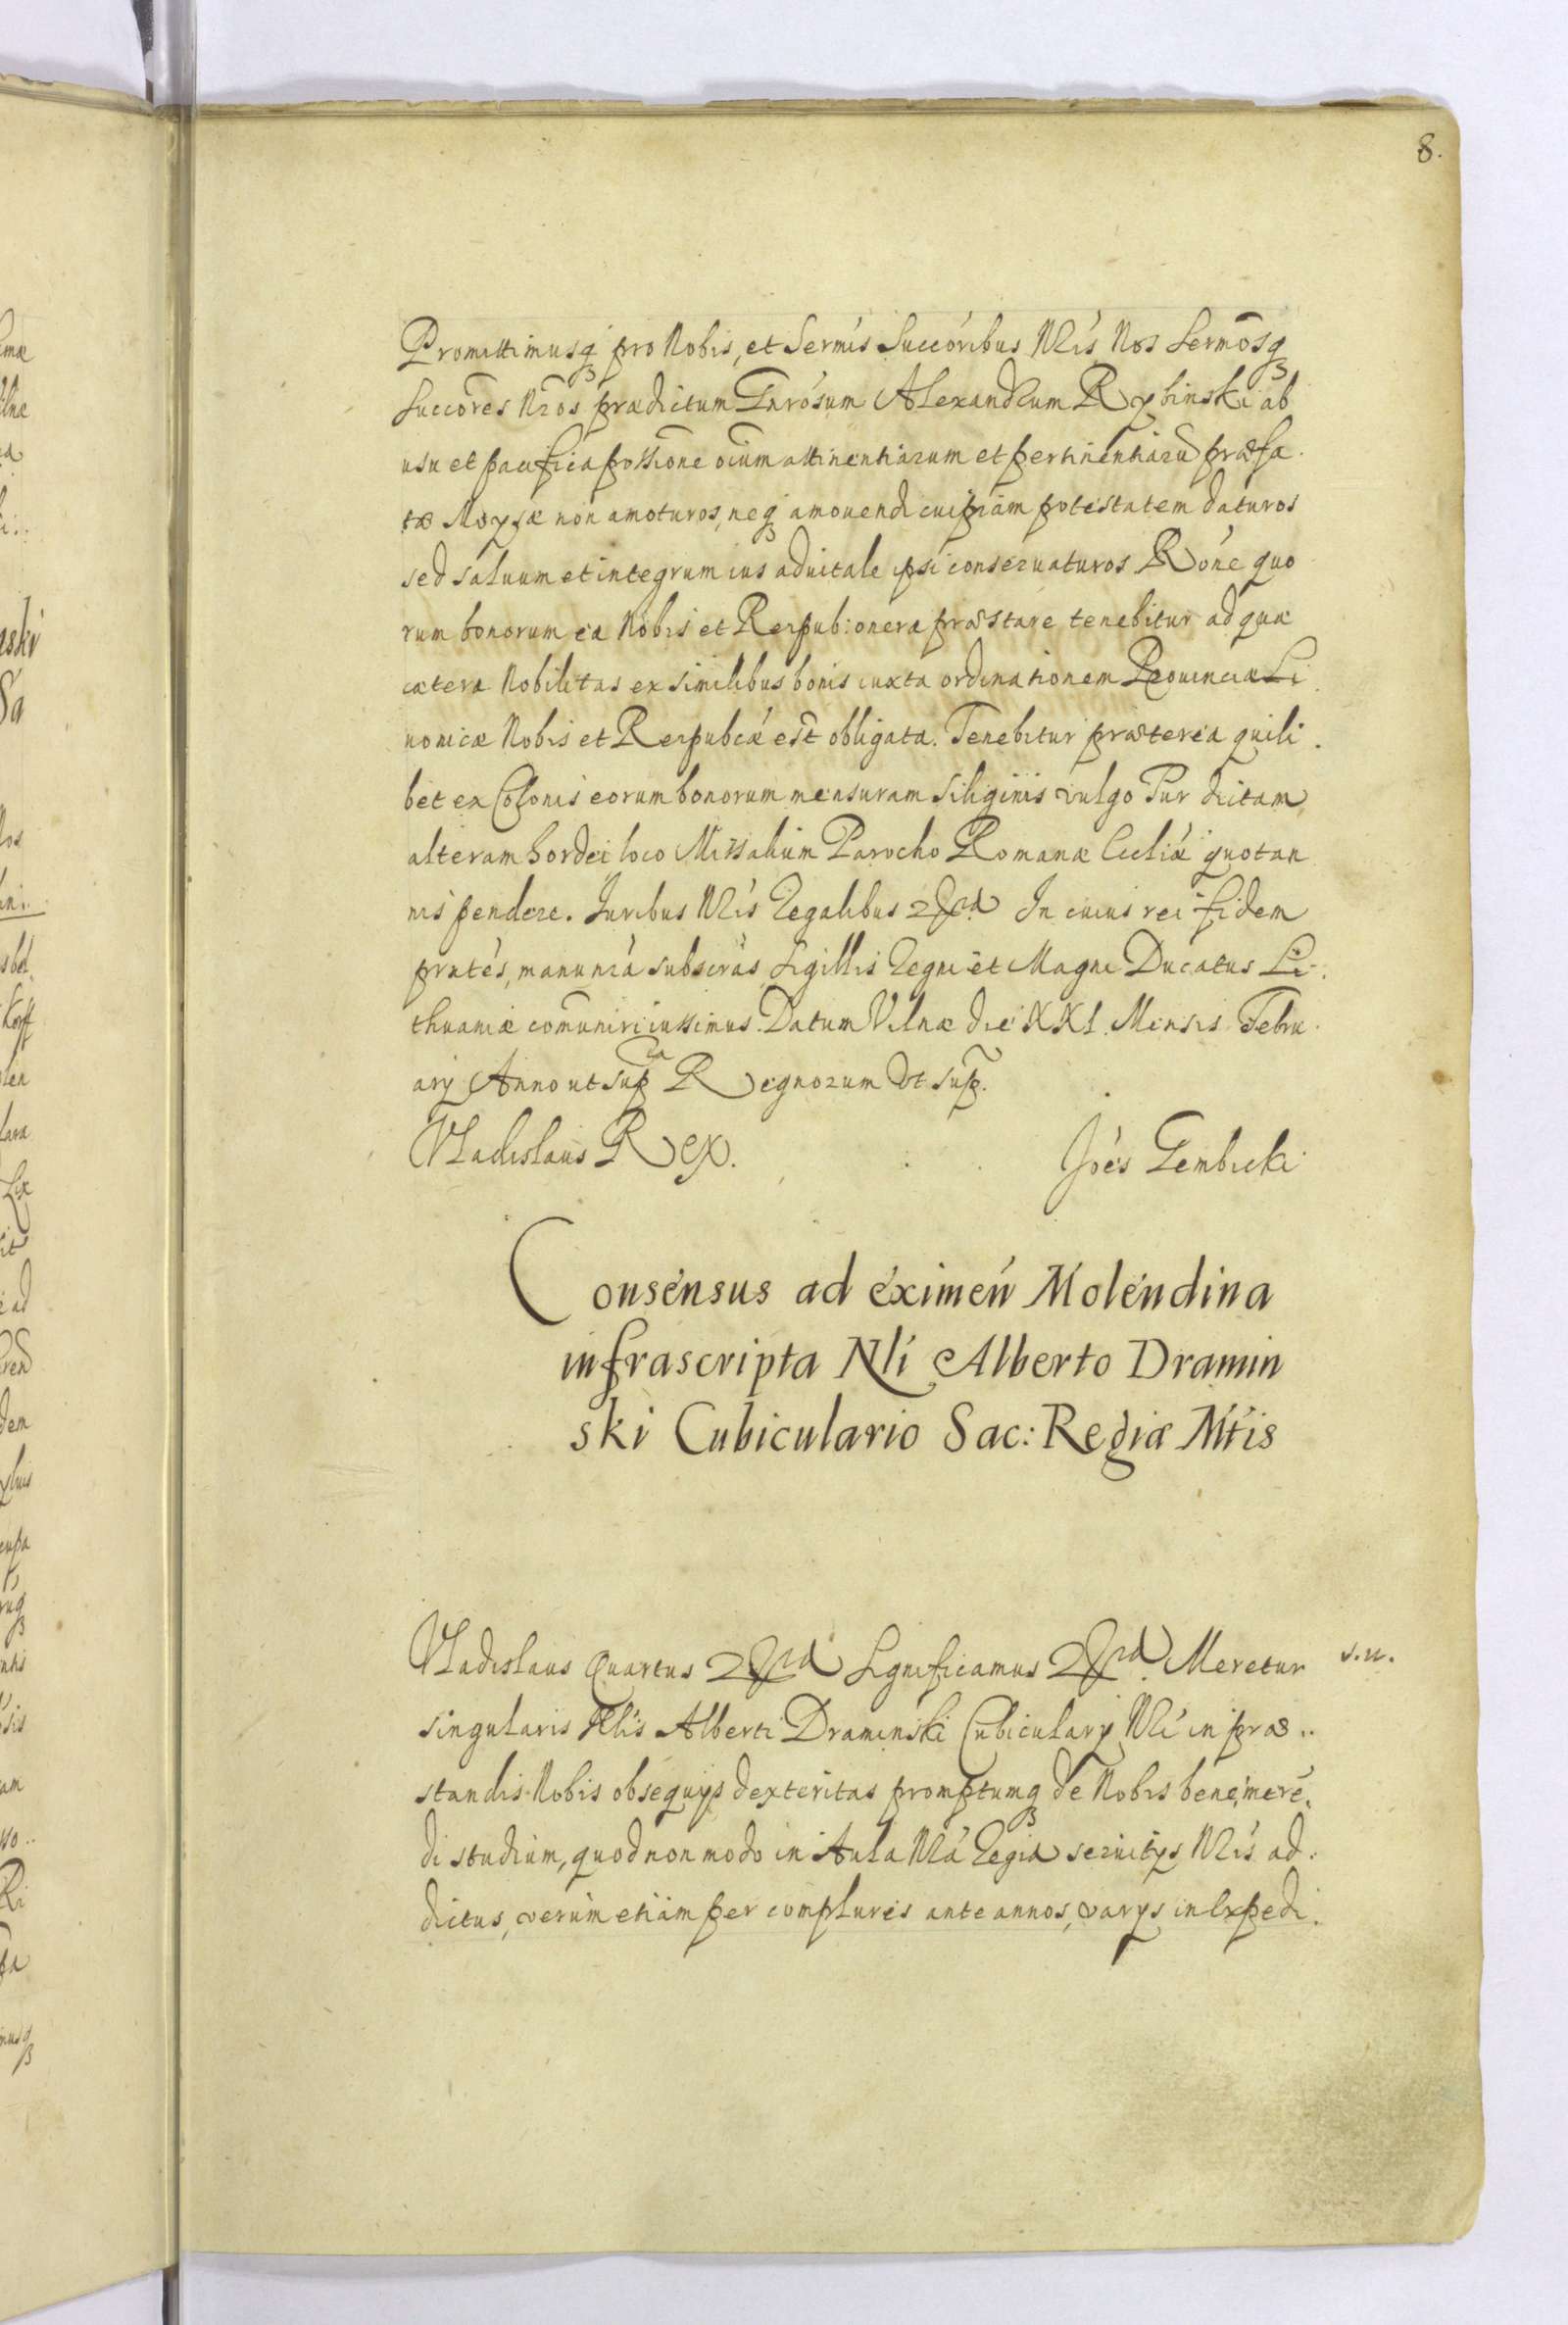 8.
Promittimusq́ꝫ pro Nobis, et Sermís Succóribus Nrís Nos Sermōsqꝫ
Succōres Nrōs prædictum Gnrōsum Alexandrum Rybinski ab
usu et pacifica possione oīum attinentiarum et pertinentiarū præfa
tæ Moyzæ non amoturos, neqꝫ amouendi cuipiam potestatem daturos
sed saluum et integrum ius aduitale ipsi conseruaturos Rōne quo
rum bonorum ea Nobis et Reipub: onera præstare tenebitur ad quæ
cætera Nobilitas ex similibus bonis iuxta ordinationem Prouinciæ Li
uonicæ Nobis et Reipubcǽ est obligata. Tenebitur præterea quili
bet ex Colonis eorum bonorum mensuram siliginis vulgo Pur dictam,
alteram hordei loco Missalium Parocho Romanæ Eccliǽ quotan
nis pendere. Juribus Nrís Regalibus &ra In cuius rei fidem
pnťes, manu nrá subscrás, Sigillis Regni et Magni Ducatus Li-
thuaniæ com̄uniri iussimus. Datum Vilnæ die XXI. Mensis Febru
arij Anno ut supra Regnorum vt sup̃.
Vladislaus Rex.
Joés Gembicki
Consénsus ad éximeń Moléndina
infrascripta Nlí Alberto Dramin
ski Cubiculario Sac: Regiæ Mťis
Vladislaus Quartus &ra Significamus &ra. Meretur
s.n.
singularis Nlís Alberti Draminski Cubicularij Nrí in præ..
standis Nobis obsequijs dexteritas promptumqꝫ de Nobis bene meré.
di studium, quod non modo in Aula Nrá Regia seruitijs Nrís ad.
dictus, verum etiam per complures ante annos, varijs in Expedi.